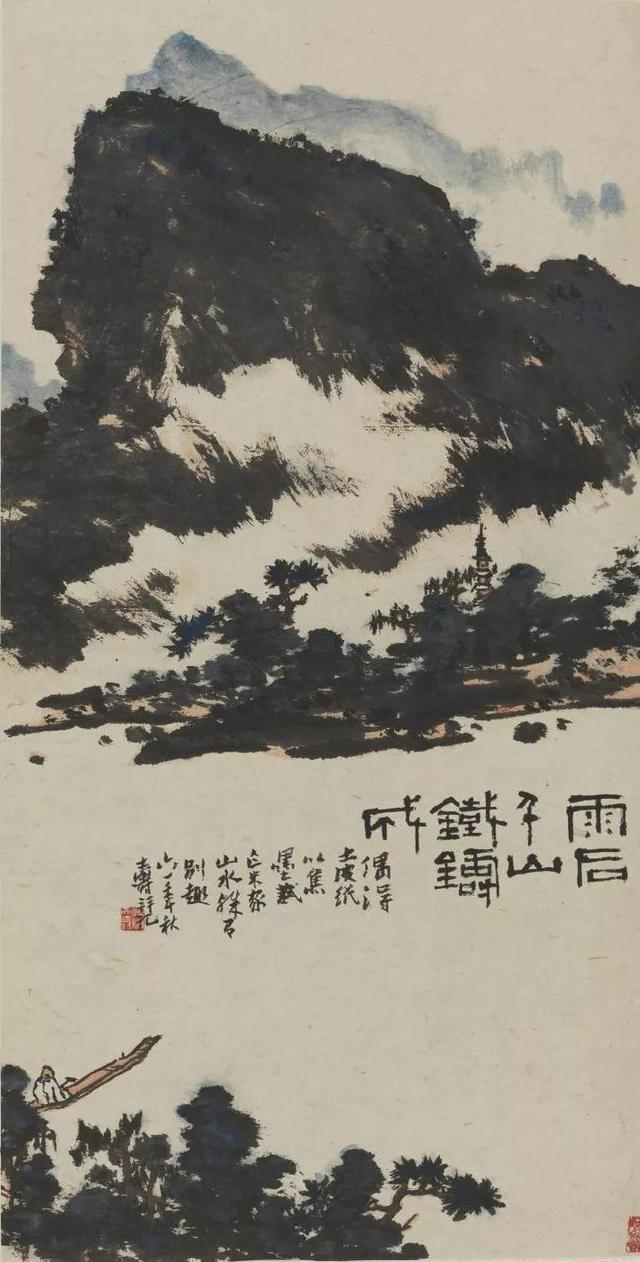 雨后
千山
鐵鑄
成
偶得
皮纸
以焦
墨戲
米家
山水殊有
别趣
六一年秋
壽